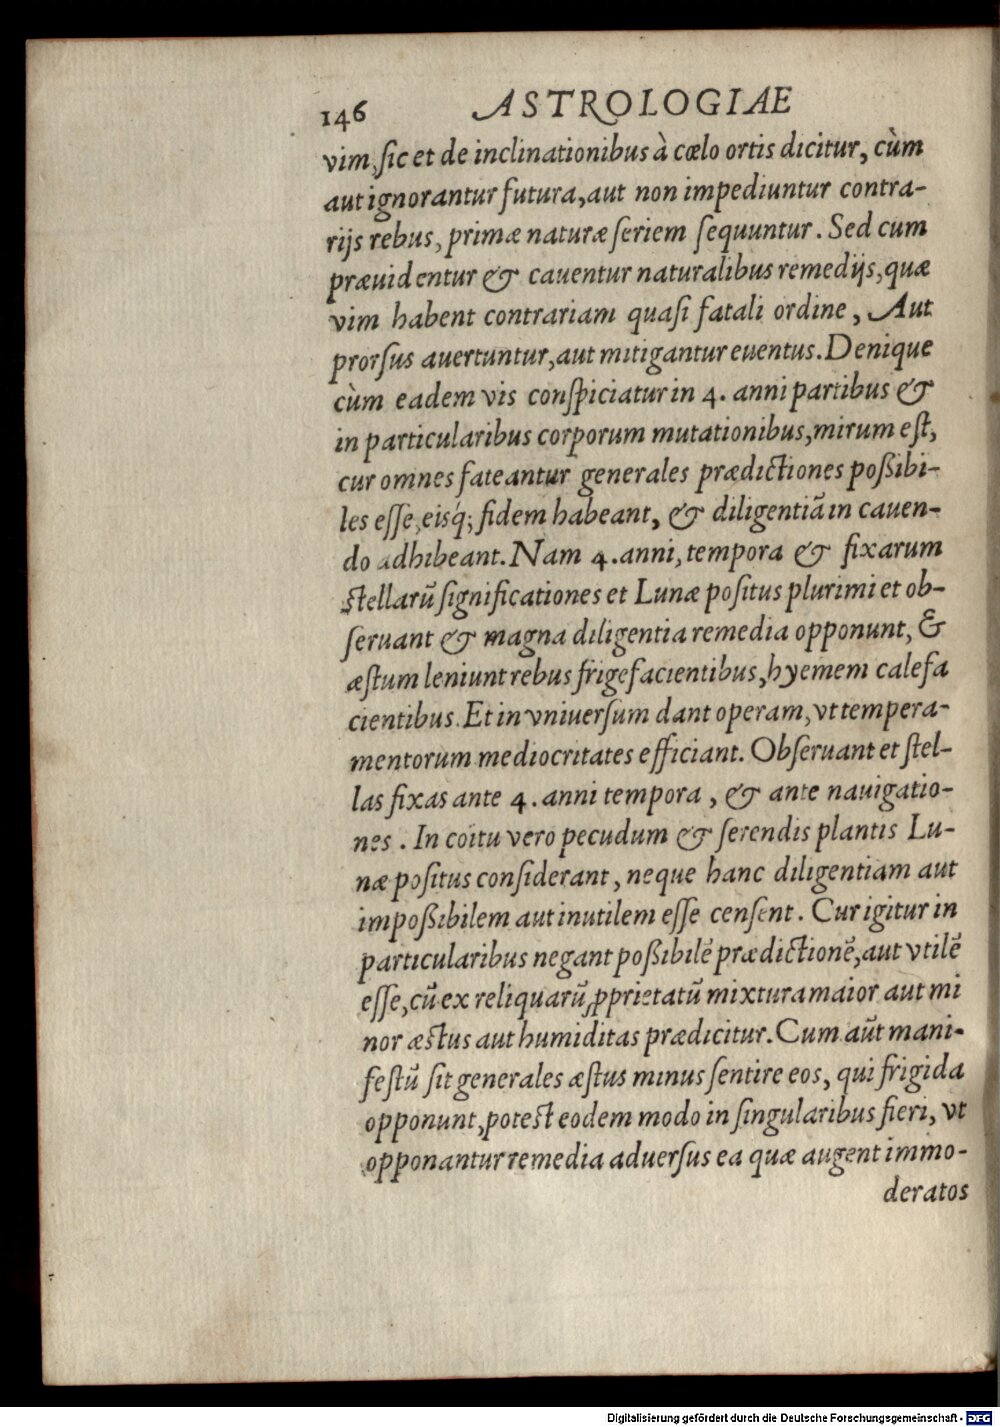 146 ASTROLOGIAE
vim, ſic et de inclinationibus à cœlo ortis dicitur, cùm
aut ignorantur futura, aut non impediuntur contra-
rijs rebus, primæ naturæ ſeriem ſequuntur. Sed cum
præuidentur & cauentur naturalibus remedijs, quæ
vim habent contrariam quaſi fatali ordine, Aut
prorſus auertuntur, aut mitigantur euentus. Denique
cùm eadem vis conſpiciatur in 4. anni partibus &
in particularibus corporum mutationibus, mirum eſt,
cur omnes fateantur generales prædictiones poßibi-
les eſſe, eisq́; fidem habeant, & diligentiã in cauen-
do adhibeant. Nam 4. anni, tempora & fixarum
ſtellarũ ſignificationes et Lunæ poſitus plurimi et ob-
ſeruant & magna diligentia remedia opponunt, &
æſtum leniunt rebus frigefacientibus, hyemem calefa
cientibus. Et in vniuerſum dant operam, vt tempera-
mentorum mediocritates efficiant. Obſeruant et ſtel-
las fixas ante 4. anni tempora, & ante nauigatio-
nes. In coitu vero pecudum & ſerendis plantis Lu-
næ poſitus conſiderant, neque hanc diligentiam aut
impoßibilem aut inutilem eſſe cenſent. Cur igitur in
particularibus negant poßibilẽ prædictionẽ, aut vtilẽ
eſſe, cũ ex reliquarũ ꝓprietatũ mixtura maior aut mi
nor æſtus aut humiditas prædicitur. Cum aũt mani-
feſtũ ſit generales æſtus minus ſentire eos, qui frigida
opponunt, poteſt eodem modo in ſingularibus fieri, vt
opponantur remedia aduerſus ea quæ augent immo-
deratos
Digitalisierung gefördert durch die Deutsche Forschungsgemeinschaft - DFG